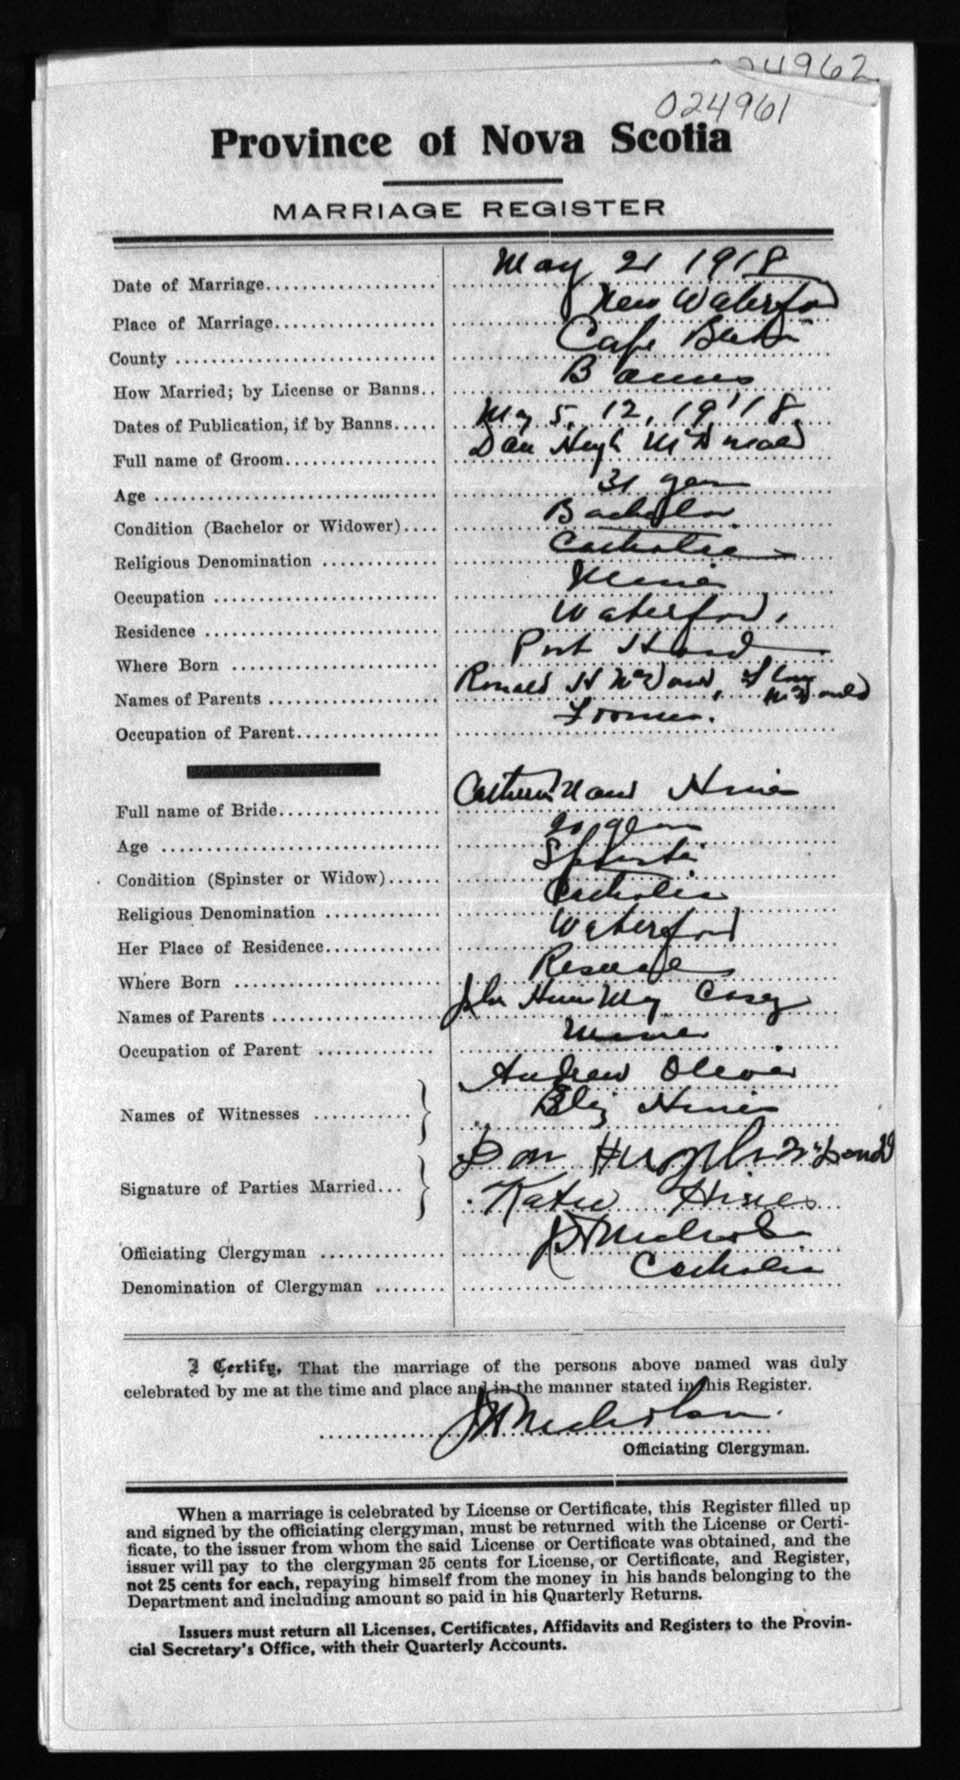 024962
024961
Province of Nova Scotia
MARRIAGE REGISTER
Date of Marriage................... May 21 1918
Place of Marriage.................. New Waterford
County ........................... Cape Breton
How Married; by License or Banns.. Banns
Dates of Publication, if by Banns..... May 5, 12, 1918
Full name of Groom................. Dan Hugh McDonald
Age .............................. 31 years
Condition (Bachelor or Widower).... Bachelor
Religious Denomination ............ Catholic
Occupation ....................... Miner
Residence ........................ Waterford,
Where Born ..................... Port Hood
Names of Parents ................. Ronald H McDonald, McDonald
Occupation of Parent............... Farmer.
Full name of Bride................ Hines
Age ............................ years
Condition (Spinster or Widow)...... Spinster
Religious Denomination ............ Catholic
Her Place of Residence............. Waterford
Where Born ..................... Reserve
Names of Parents ................. John Hines May Casey
Occupation of Parent ............ Miner
Names of Witnesses .......... Andrew
Eliz Hines
Signature of Parties Married... Dan Hugh McDonald
Katie Hines
Officiating Clergyman ............. J H Nicholson
Denomination of Clergyman ........ Catholic
I Certify, That the marriage of the persons above named was duly
celebrated by me at the time and place and in the manner stated in this Register.
J H Nicholson.
Officiating Clergyman.
When a marriage is celebrated by License or Certificate, this Register filled up
and signed by the officiating clergyman, must be returned with the License or Certi-
ficate, to the issuer from whom the said License or Certificate was obtained, and the
issuer will pay to the clergyman 25 cents for License, or Certificate, and Register,
not 25 cents for each, repaying himself from the money in his hands belonging to the
Department and including amount so paid in his Quarterly Returns.
Issuers must return all Licenses, Certificates, Affidavits and Registers to the Provin-
cial Secretary's Office, with their Quarterly Accounts.